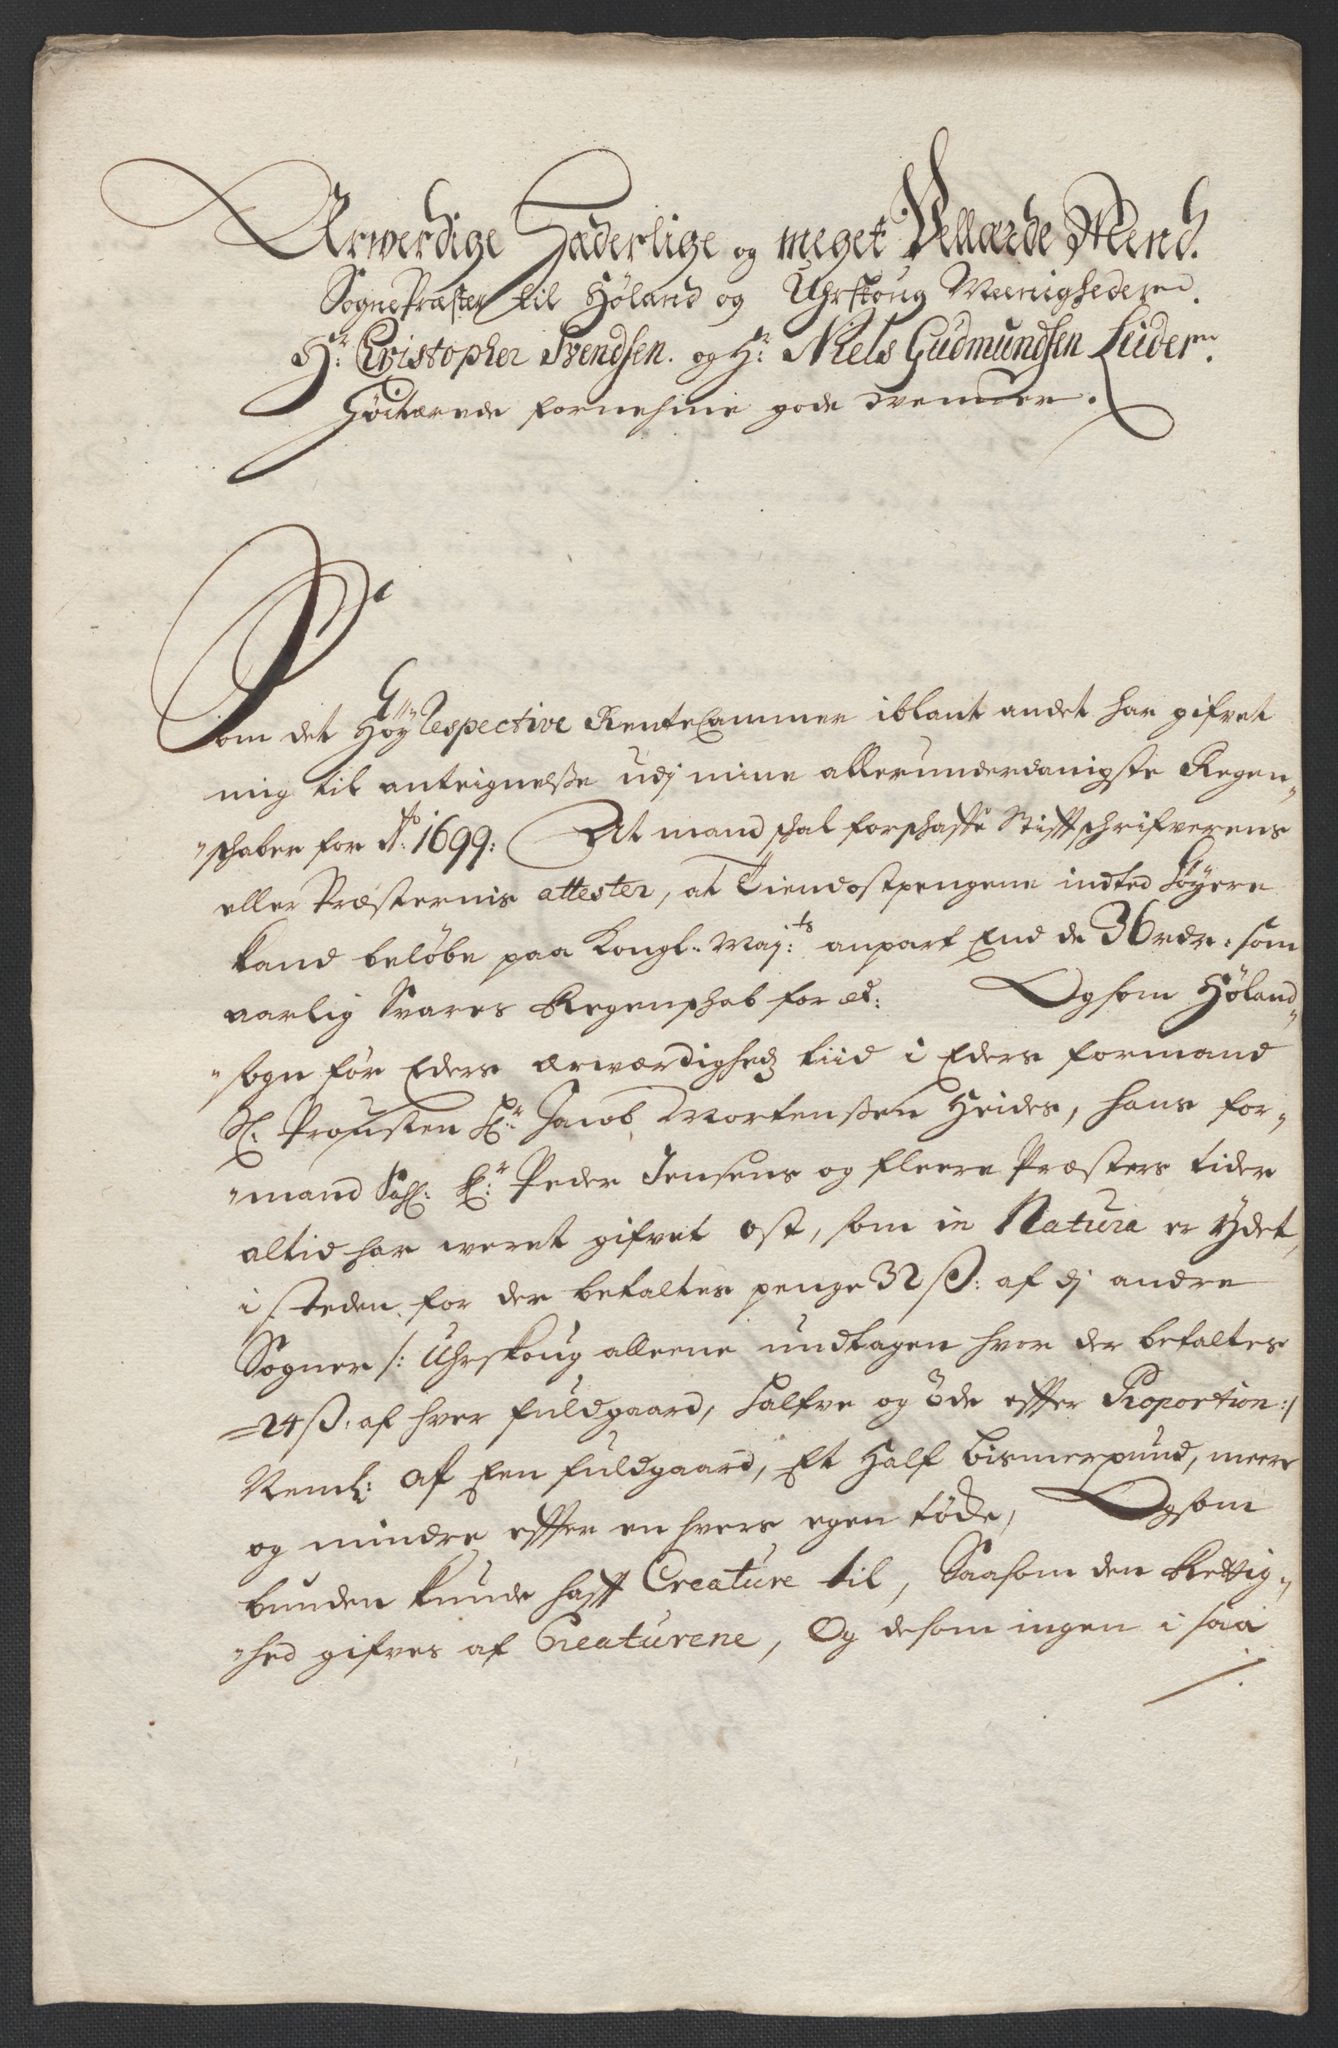 Ærwerdige Hæderlige og meget Vellærde Mend.
SognePræster til Høland og Uhrskoug Meenigheder
Hr: Cristopher Svendsen. og Hr: Niels Gudmundsen Luder
Høitærede fornehme gode Venner.
Som det HøyRespective RenteCammer iblant andet har gifvet
mig til anteignelsse udj mine allerunderdanigste Regen„
„schaber for Ao: 1699: At mand schal forschaffe Stifftschrifverens
eller Præsternis attester, at Tiendostpengene indted høyere
kand beløbe paa Kongl. May:ts anpart End de 36 rdr: som
aarlig Svares Regenschab for et: Og som Høland„
„sogn før Eders Ærværdighedz tiid i Eders formand
Sl. Profusten Hr: Jacob Mortenssen Heides, hans for„
„mand Sahl: Hr: Peder Jensens og fleere Præsters tider
altid har weret gifvet ost, som in Natura er ydet,
i steden for der betaltes penge 32 ß: af dj andre
Sogner /: Uhrskoug alleene undtagen hvor der betaltes
24 ß: af hver fuldgaard, halfve og øde effter Proportion :/
Neml: af Een fuldgaard, Et Half bismerpund, meere
og mindre effter en hvers egenføde, Og som
bunden kunde hafft Creature til, Saasom den Rettig„
„hed gifves af Creaturene, Og desom ingen i saa